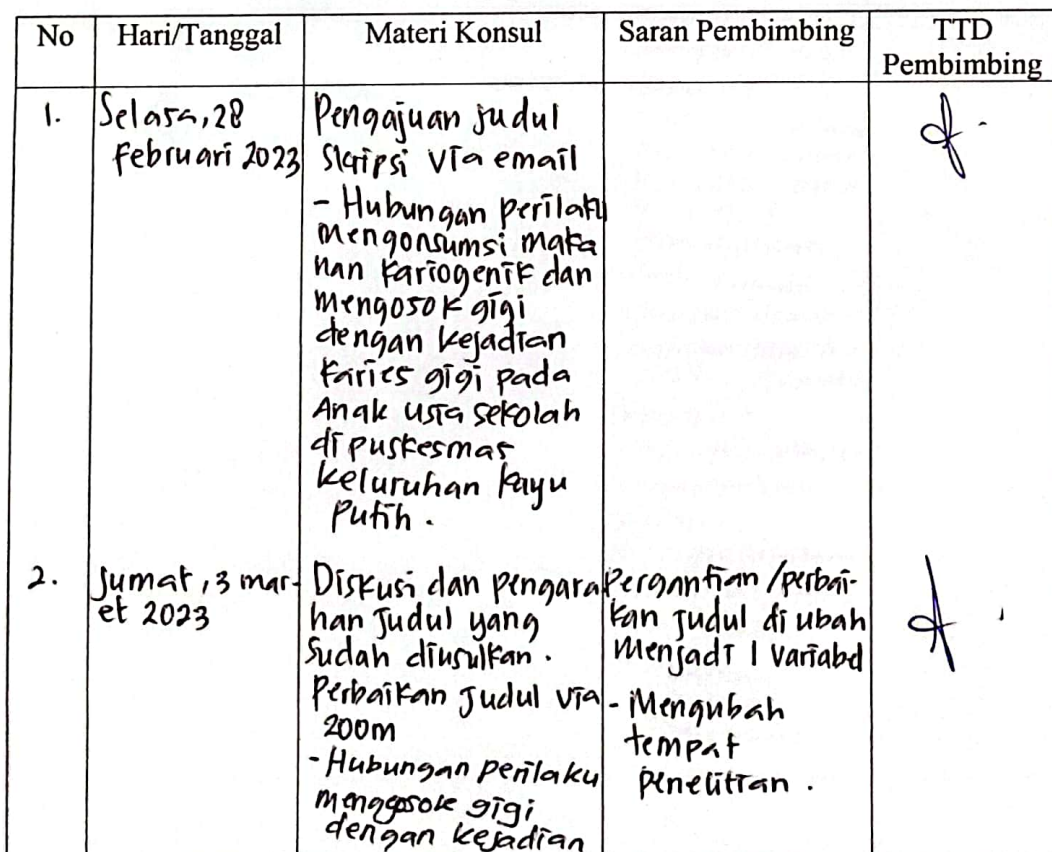 No Hari/Tanggal Materi Konsul Saran Pembimbing TTD Pembimbing
1. Selasa, 28 Februari 2023
Pengajuan judul
Skripsi via email
- Hubungan perilaku
mengonsumsi maka
nan kariogenik dan
mengosok gigi
dengan kejadian
karies gigi pada
Anak usia sekolah
di puskesmas
keluruhan kayu
Putih.
2. Jumat, 3 mar-
et 2023
Diskusi dan pengara
han judul yang
sudah diusulkan.
Perbaikan judul via
zoom
- Hubungan perilaku
menggosok gigi
dengan kejadian
Pergantian /perbai-
kan judul di ubah
menjadi 1 variabel
- Mengubah
tempat
penelitian.